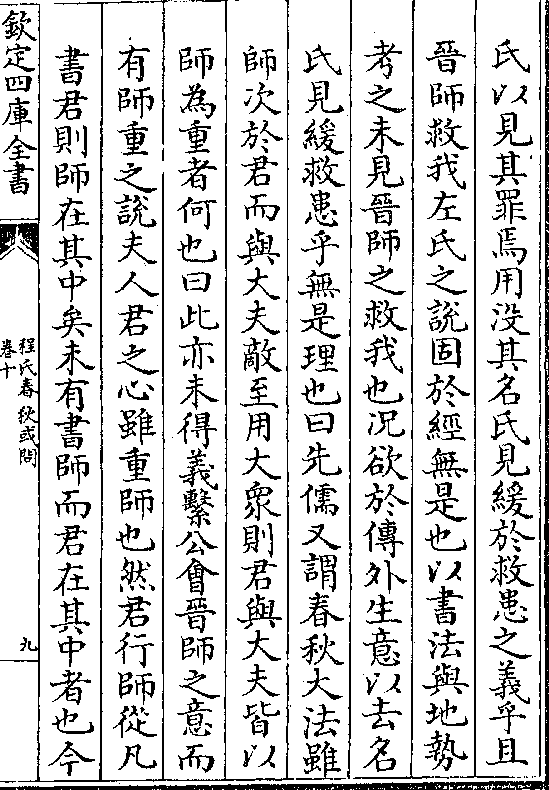 氏以見其罪焉用没其名氏見緩於救患之義乎且
晉師救我左氏之說固於經無是也以書法與地勢
考之未見晉師之救我也况欲於傳外生意以去名
氏見緩救患乎無是理也曰先儒又謂春秋大法雖
師次於君而與大夫敵至用大衆則君與大夫皆以
師為重者何也曰此亦未得義繫公會晉師之意而
有師重之說夫人君之心雖重師也然君行師從凡
書君則師在其中矣未有書師而君在其中者也今
欽定四庫全書
程氏春秋或問
卷十
九